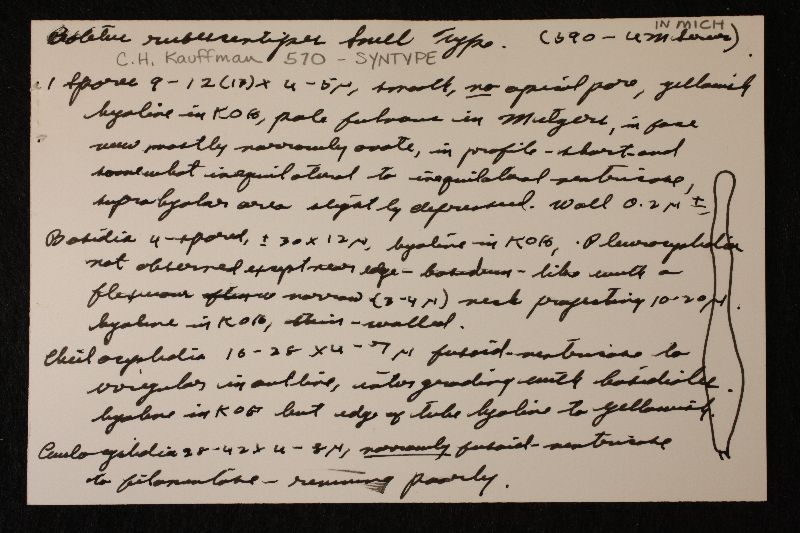 IN MICH
Boletus rubescentipes Snell Type. (590 - UM Series)
C.H. Kauffman 570 - SYNTYPE
1 Spores 9-12(13) x 4-5µ, smooth, no apical pore, yellowish
hyaline in KOH, pale fulvous in Melzers, in face
view mostly narrowly ovate, in profile - short and
somewhat inequilateral to inequilateral ventricose,
suprahyalar area slightly depressed. Wall 0.2µ ±
Basidia 4-spored, ± 30 x 12µ, hyaline in KOH, . Pleurocystidia
not observed exept near edge - basidium - like with a
flexuous narrow (3-4µ) neck projecting 10-20µ.
hyaline in KOH, thin-walled.
Cheilocystidia 16-28 x 4-7µ fusoid-ventricose to
irregular in outline, intergrading with basidioles.
hyaline in KOH but edge of tube hyaline to yellowish.
Caulocystidia 28-42 x 4-8µ, narrowly fusoid-ventricose
to filamentose - reviving poorly.